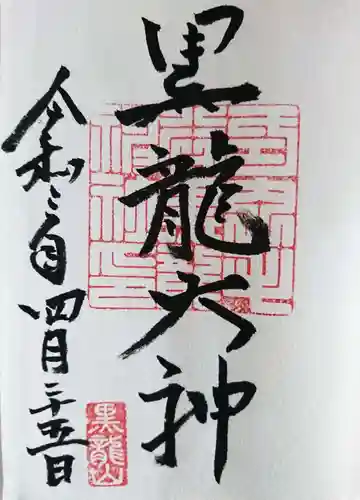 黒龍大神
令和二年四月二十五日
黒龍山